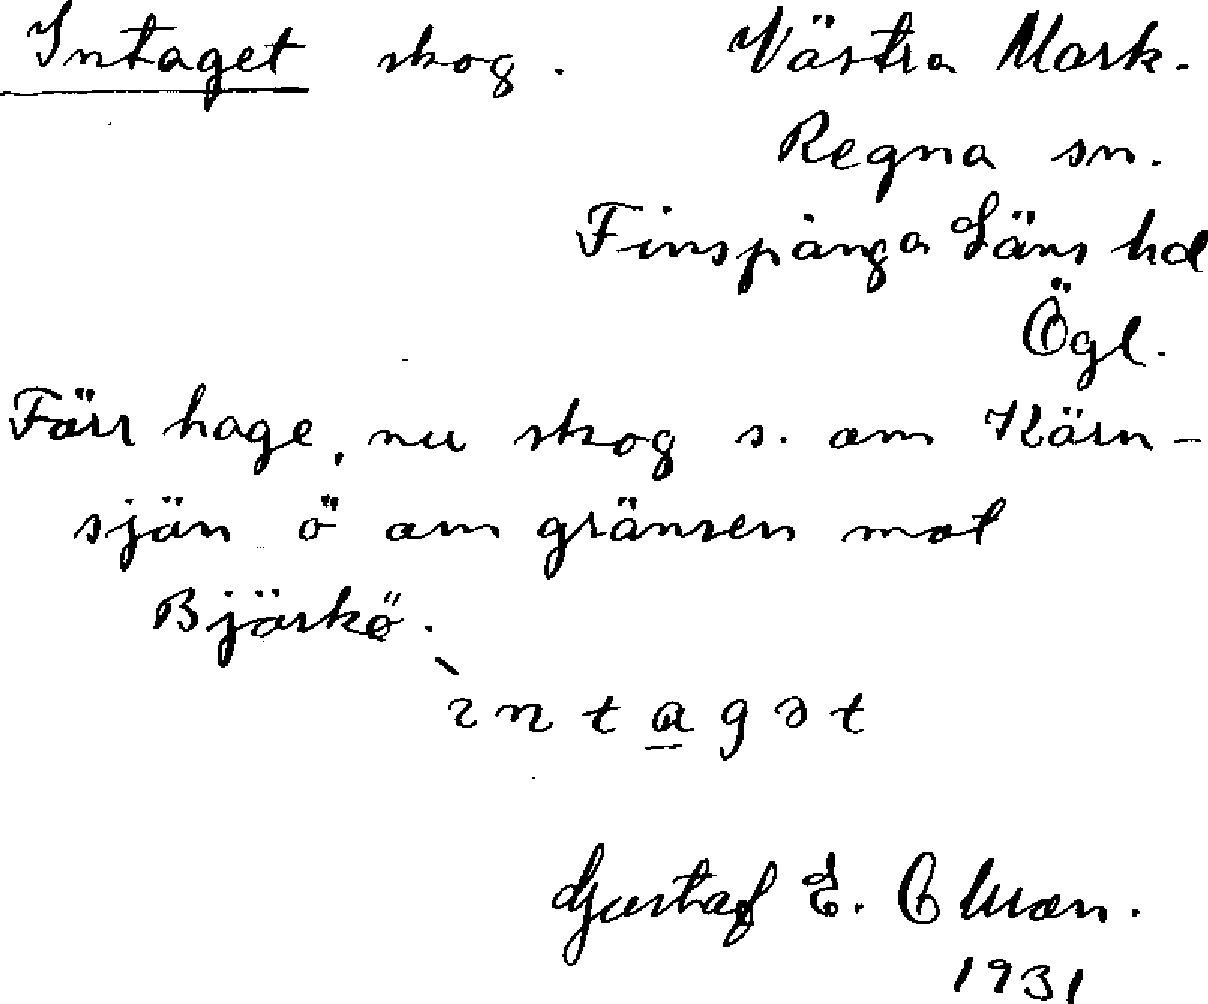 Intaget skog. Västra Mark.
Regna sn.
Finspånga Läns hd
Ögl.
Förr hage, nu skog s. om Körn-
sjön ö om gränsen mot
Björkö.
ìntagət
Gustaf E.
1931